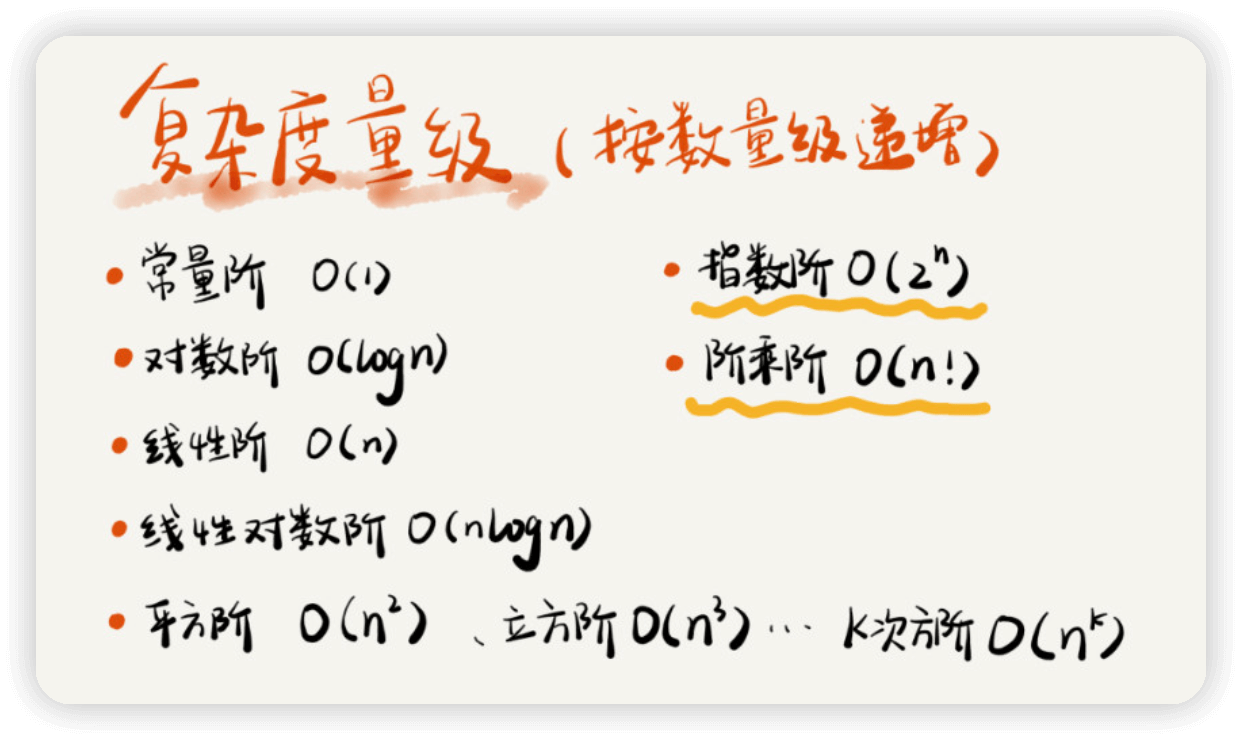 复杂度量级（按数量级递增）
• 常量阶 O(1)
• 对数阶 O(logn)
• 线性阶 O(n)
• 线性对数阶 O(nlogn)
• 平方阶 O(n²) 、立方阶 O(n³) … K次方阶 O(nᵏ)
• 指数阶 O(2ⁿ)
• 阶乘阶 O(n!)